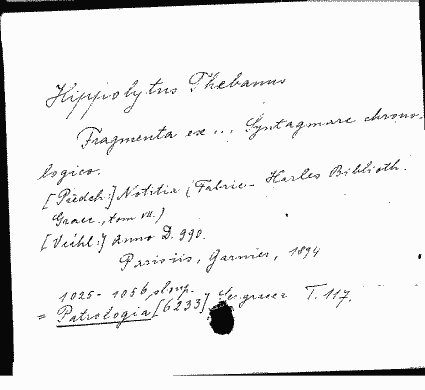 Hippolytus Thebanus
Fragmenta ex ... Syntagmate chrono-
logico.
[Předch:] Notitia (Fabric- Harles Biblioth.
Graec., tom VII.)
[Věhl:] Anno D. 990.
Parisiis, Garnier, 1894
1025-1056, sloup.
= Patrologia [6233] Ser. graeca T. 117.